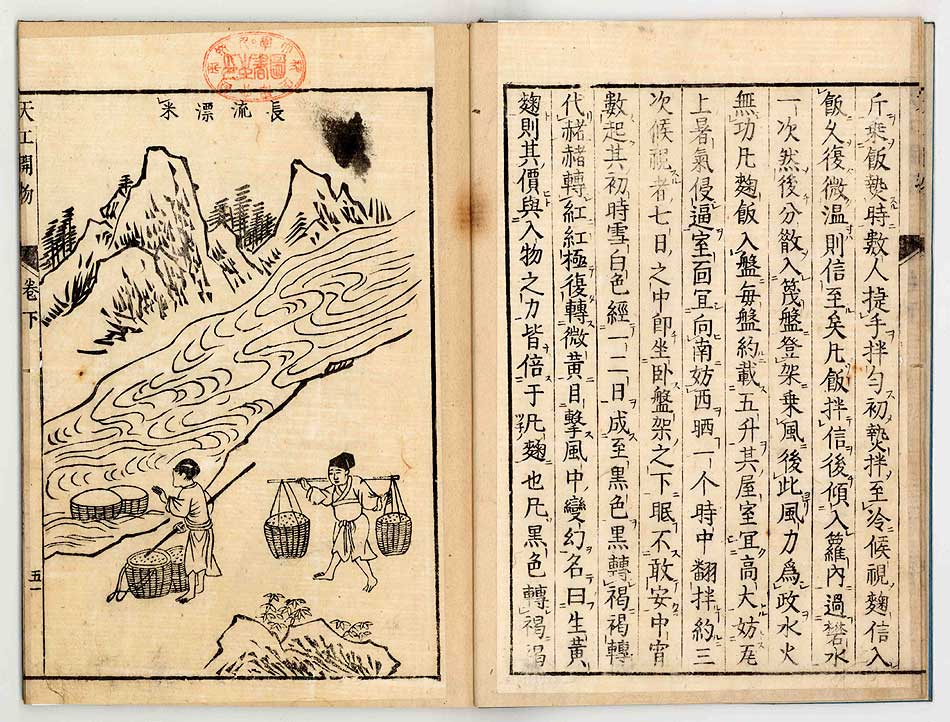 斤乗飯熱時數人捷手拌勻初熱拌至冷候視麴信入
飯久復微溫則信至矣凡飯拌信後傾入籮內過礬水
一次然後分散入篾盤登架乗風後此風力為政水火
無功凡麴飯入盤每盤約載五升其屋室宜高大妨瓦
上暑氣侵逼室面宜向南妨西晒一个時中翻拌約三
次候視者七日之中即坐臥盤架之下眠不敢安中宵
數起其初時雪白色經一二日成至黑色黑轉褐褐轉
代赭赭轉紅紅極復轉微黃目擊風中變幻名曰生黃
麴則其價與入物之力皆倍于凡麴也凡黑色轉褐褐
長流漂米
天工開物 卷下 五一